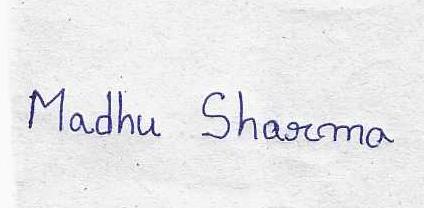 Madhu Sharma